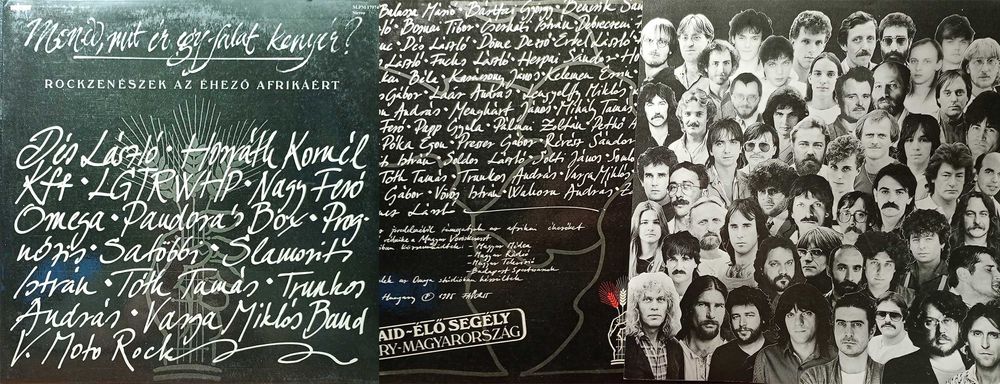 Mondd, mit ér egy falat kenyér?
ROCKZENÉSZEK AZ ÉHEZŐ AFRIKÁÉRT
Stereo
Dés László · Horváth Kornél
Kft · LGT RWHP · Nagy Feró
Omega · Pandora's Box · Prog-
nózis · Satöbbi · Slamovits
István · Tóth Tamás · Trunkos
András · Varga Miklós Band
V. Moto Rock
Balázsa Márió · Bártfai György · Bencsik San
Bornai Tibor · Csernai István · Debreczeni
Dés László · Döme Dezső · Erkel László
László · Fuchs László · Herpai Sándor · Ho
kai Béla · Karácsony János · Kelemen Ervin
s Gábor · Laár András · Lengyelfi Miklós
on András · Menyhárt János · Mihály Tamás
Feró · Papp Gyula · Pálmai Zoltán · Pethő
Póka Egon · Presser Gábor · Kéresz Sándor
István · Soldos László · Solti János · Som
Tóth Tamás · Trunkos András · Varga Miklós
Gábor · Vörös István · Wahorn András · Z
László
az afrikai éhezőket
a Magyar Vöröskereszt
közreműködtek: - Magyar Média
- Magyar Rádió
- Magyar Televízió
- Budapest Sportcsarnok
az Omega stúdióban készültek
Hungary ℗ 1985
AID-ÉLŐ SEGÉLY
RY-MAGYARORSZÁG